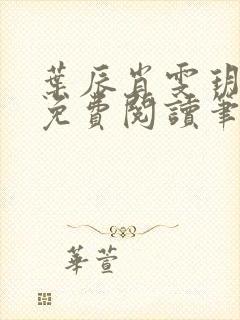 葉辰肖雯玥
免費閱讀筆
華萱